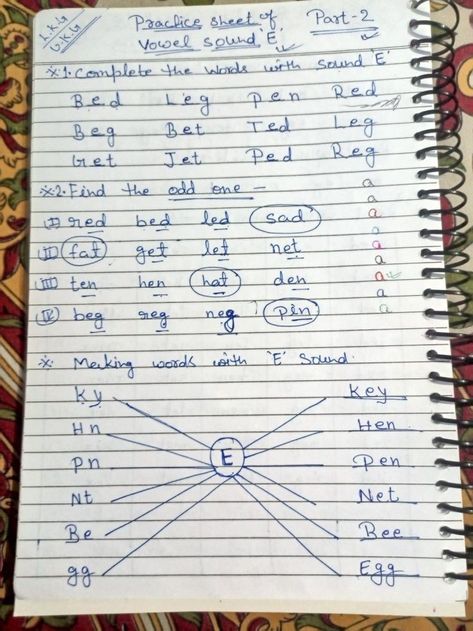 L.K.G
U.K.G
Practice sheet of Part-2
Vowel sound 'E'.
*.1. Complete the words with sound 'E'
Bed Leg Pen Red
Beg Bet Ted Leg
Get Jet Ped Reg
*.2. Find the odd one -
a
(I) red bed led sad
a
a
(II) fat get let net
a
a
(III) ten hen hat den
a
a
(IV) beg reg neg pin
a
* Making words with 'E' Sound.
Ky Key
Hn Hen
E
Pn Pen
Nt Net
Be Bee
gg Egg